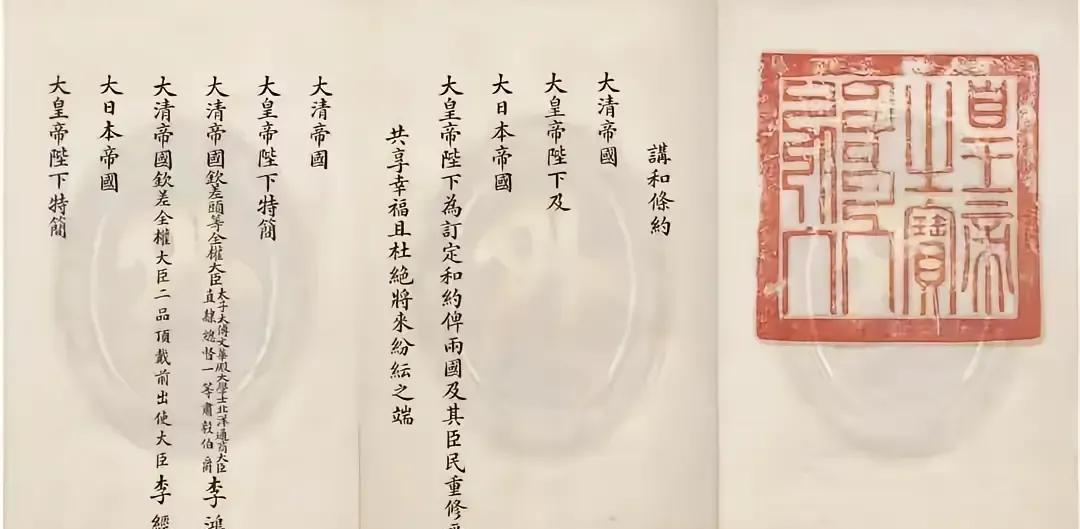 皇帝之寶
講和條約
大清帝國
大皇帝陛下及
大日本帝國
大皇帝陛下為訂定和約俾兩國及其臣民重修
共享幸福且杜絕將來紛紜之端
大清帝國
大皇帝陛下特簡
大清帝國欽差頭等全權大臣太子太傅文華殿大學士北洋通商大臣直隸總督一等肅毅伯爵李鴻
大清帝國欽差全權大臣二品頂戴前出使大臣李經
大日本帝國
大皇帝陛下特簡